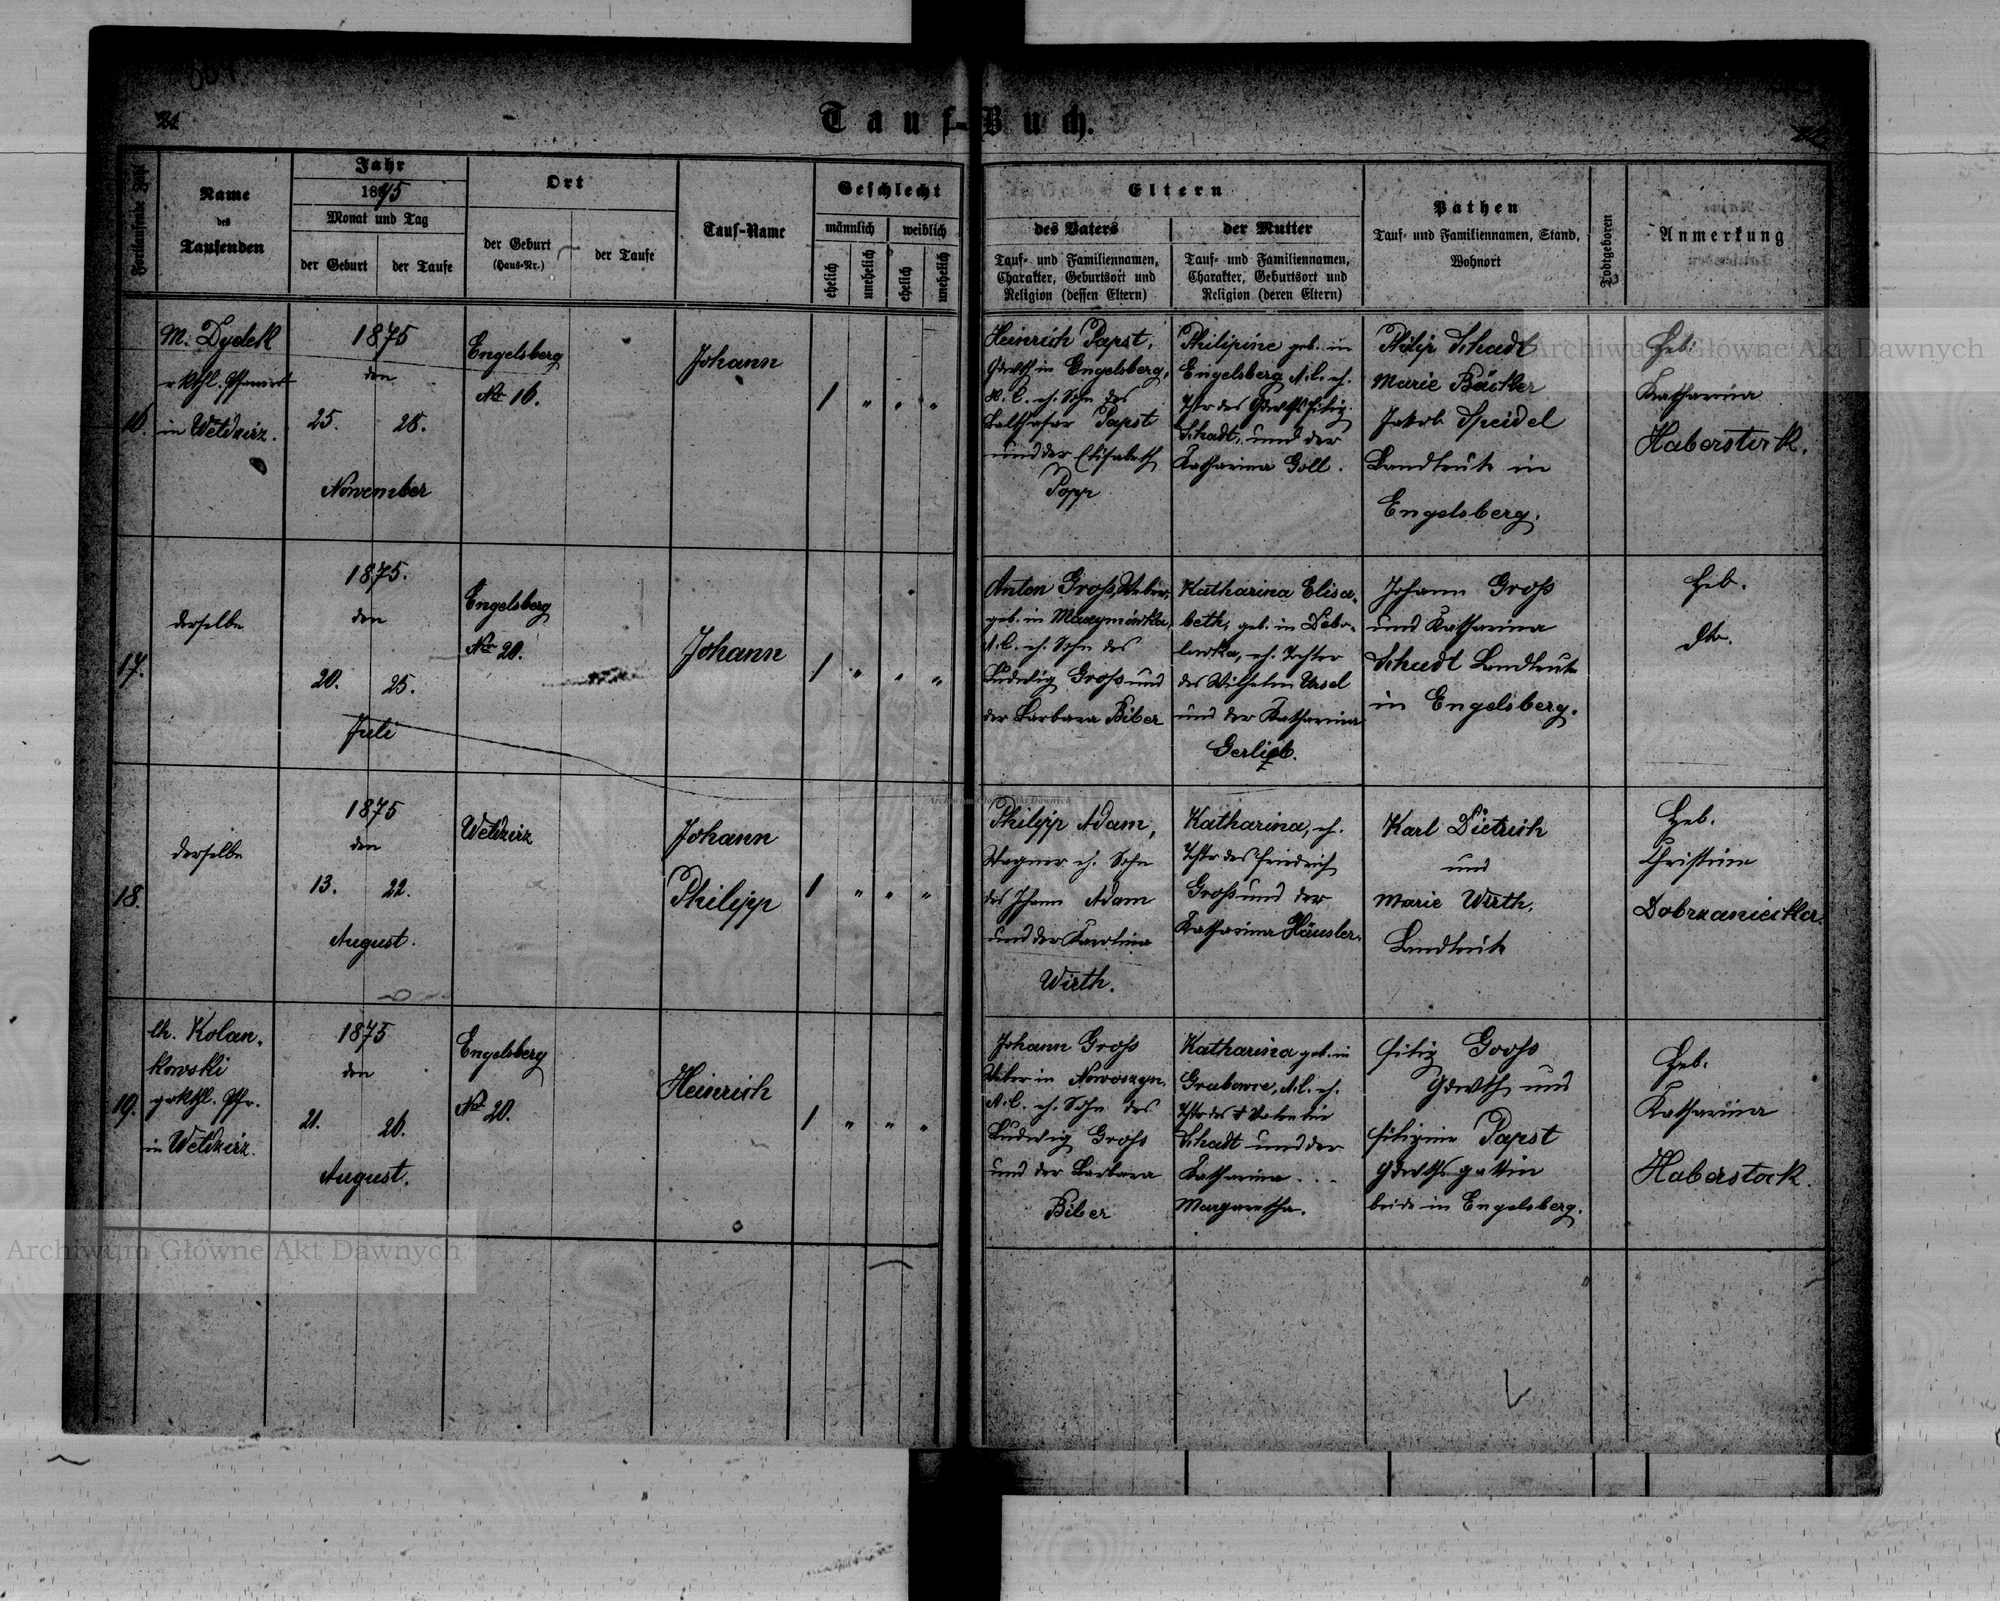 Tauf-Buch.
Fortlaufende Zahl
Name
des
Taufenden
Jahr
1875
Monat und Tag
der Geburt
der Taufe
Ort
der Geburt
(Haus-Nr.)
der Taufe
Tauf-Name
Geschlecht
männlich
weiblich
ehelich
unehelich
ehelich
unehelich
Eltern
des Vaters
Tauf- und Familiennamen,
Charakter, Geburtsort und
Religion (dessen Eltern)
der Mutter
Tauf- und Familiennamen,
Charakter, Geburtsort und
Religion (deren Eltern)
Pathen
Tauf- und Familiennamen, Stand,
Wohnort
Todtgeboren
Anmerkung
16.
M. Dydek
in Wełdzirz.
1875
den
25. 28.
November
Engelsberg
No 16.
Johann
1 " " "
Heinrich Papst,
in Engelsberg,
A. C. eh. Sohn des
Balthasar Papst
und der Elisabeth
Popp
Philipine geb. in
Engelsberg A. C. eh.
Schadt, und der
Katharina Goll.
Philip Schadt
Marie Bäcker
Jakob Speidel
Landleute in
Engelsberg.
Heb.
Katharina
Haberstock.
17.
derselbe
1875.
den
20. 25.
Juli
Engelsberg
No 20.
Johann
1 " " "
Anton Groß, Weber,
geb. in Mazymówka,
A. C. eh. Sohn des
Ludwig Groß und
der Barbara Biber
Katharina Elisa-
beth, geb. in Debo-
lowka, eh. Tochter
des Wilhelm Ursel
und der Katharina
Gerlieb.
Johann Groß
und Katharina
Schadt Landleute
in Engelsberg.
Heb.
dto.
18.
derselbe
1875
den
13. 22.
August.
Wełdzirz
Johann
Philipp
1 " " "
Philipp Adam,
Wagner eh. Sohn
des Johann Adam
und der Karolina
Wirth.
Katharina, eh.
Tchtr des Friedrich
Groß und der
Katharina Häusler.
Karl Dietrich
und
Marie Wirth,
Landleute
Heb.
Christine
Dobrzaniecka.
19.
Kolan-
kowski
grkthl. Pfr.
in Wełdzirz.
1875
den
21. 26.
August.
Engelsberg
No 20.
Heinrich
1 " " "
Johann Groß
Weber in Nowoszyn,
A. C. eh. Sohn des
Ludwig Groß
und der Barbara
Biber
Katharina geb. in
Grabowce, A. C. eh.
Tchtr des † Valentin
Schadt und der
Katharina
Margaretha.
Filip Groß
und
Filipine Papst
beide in Engelsberg.
Heb.
Katharina
Haberstock.
Archiwum Główne Akt Dawnych
Archiwum Główne Akt Dawnych
Archiwum Główne Akt Dawnych